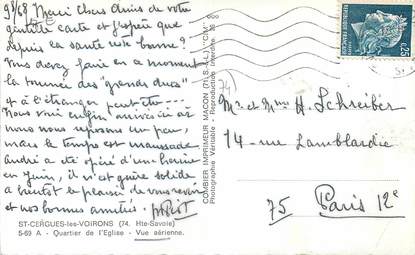 9/8/68 Merci chers Amis de votre
gentille carte et j'espère que
depuis la santé est bonne?
Vous devez faire en ce moment
la tournée des "grands ducs"
et à l'étranger peut-être...
Nous voici enfin arrivés ici où
nous nous reposons un peu,
mais le temps est maussade
André a été opéré d'une hernie
en Juin, il n'est guère solide
à bientôt le plaisir de vous revoir
et nos bonnes amitiés.
ST-CERGUES-les-VOIRONS (74. Hte-Savoie)
5-69 A - Quartier de l'Eglise - Vue aérienne.
COMBIER IMPRIMEUR MACON (71 S.-&-L.) "CIM"
Photographie Véritable - Reproduction Interdite
REPUBLIQUE FRANÇAISE
0,25
Mr et Mme H. Schreiber
74 - rue Lamblardie
75 Paris 12e